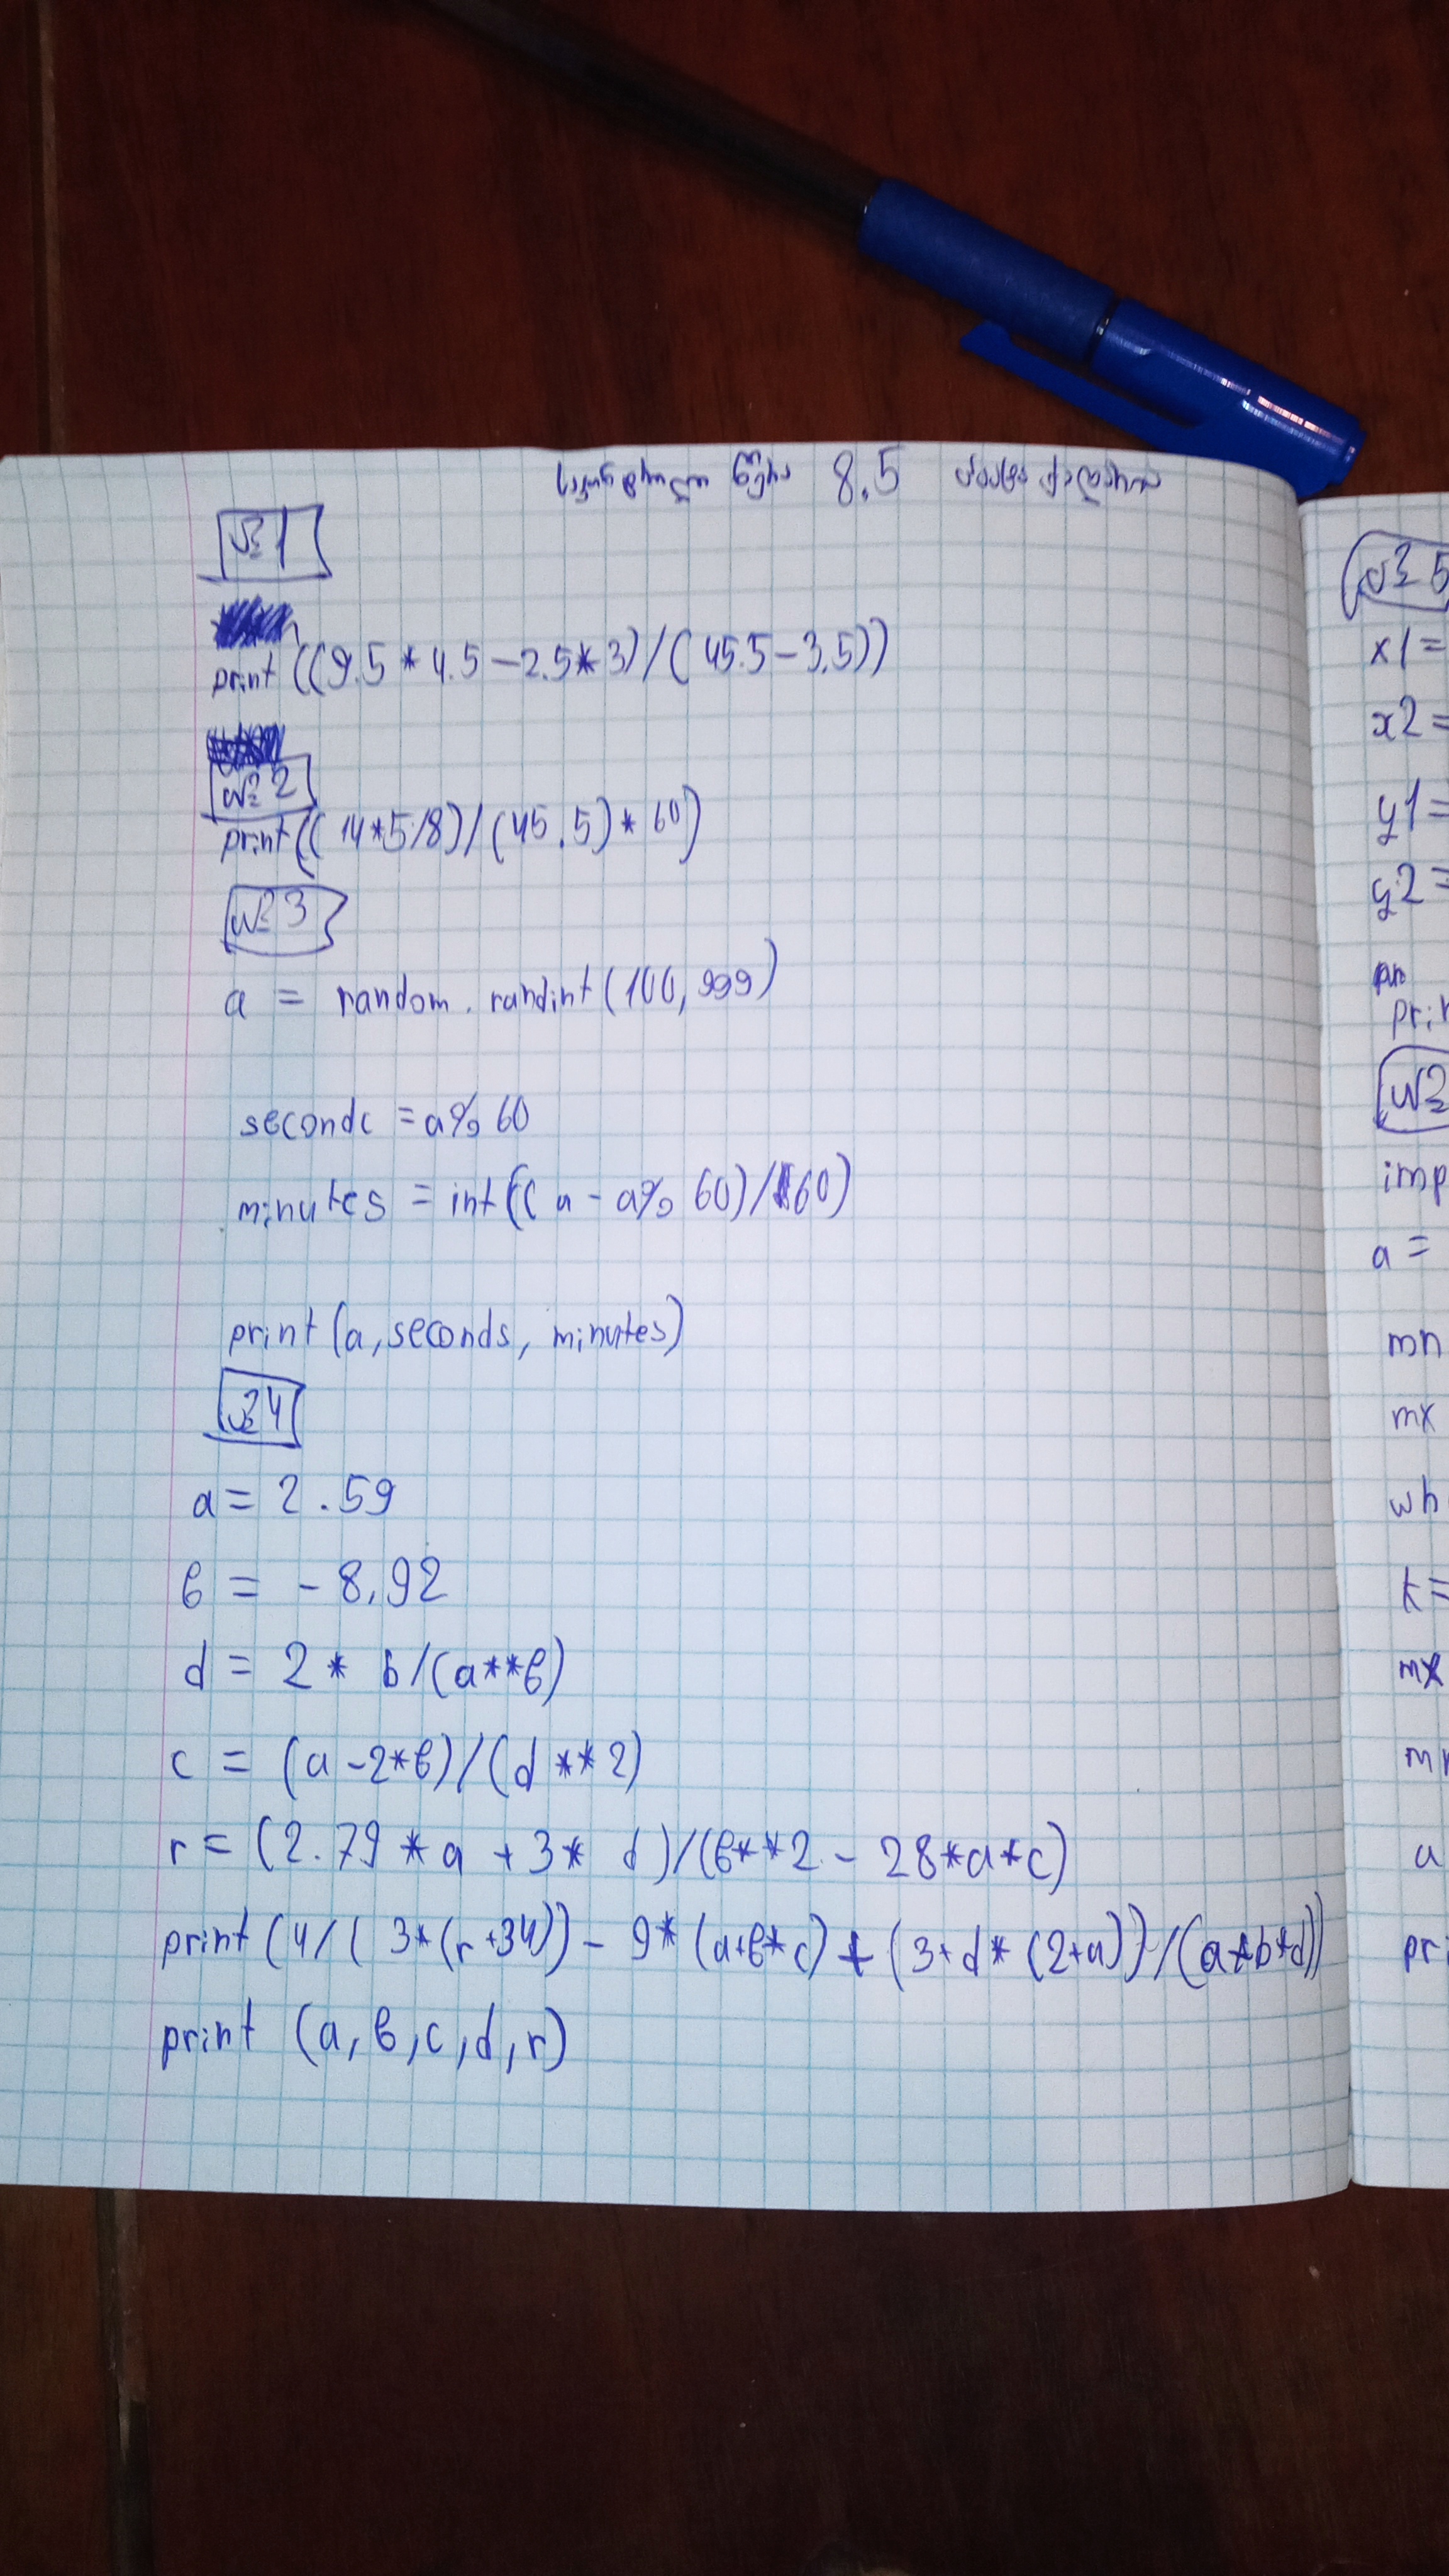 8.5
№1
print ((9.5 * 4.5 - 2.5 * 3) / (45.5 - 3.5))
№2
print (( 14*5/8) / (45.5) * 60)
№3
a = random.randint(100, 999)
secondc = a% 60
minutes = int (( a - a% 60) / 60)
print (a, seconds, minutes)
№4
a = 2.59
в = - 8,92
d = 2 * b / (a**в)
c = (a - 2*в) / (d ** 2)
r = (2.79 * a + 3 * d) / (в**2 - 28*a*c)
print (4 / ( 3*(r+34)) - 9* (a+в*c) + (3+d* (2+a)) / (a+b+d))
print (a, в, c, d, r)
№5
x1 =
x2 =
y1 =
y2 =
prin
№
imp
a =
mn
mx
wh
k =
mx
a
pri